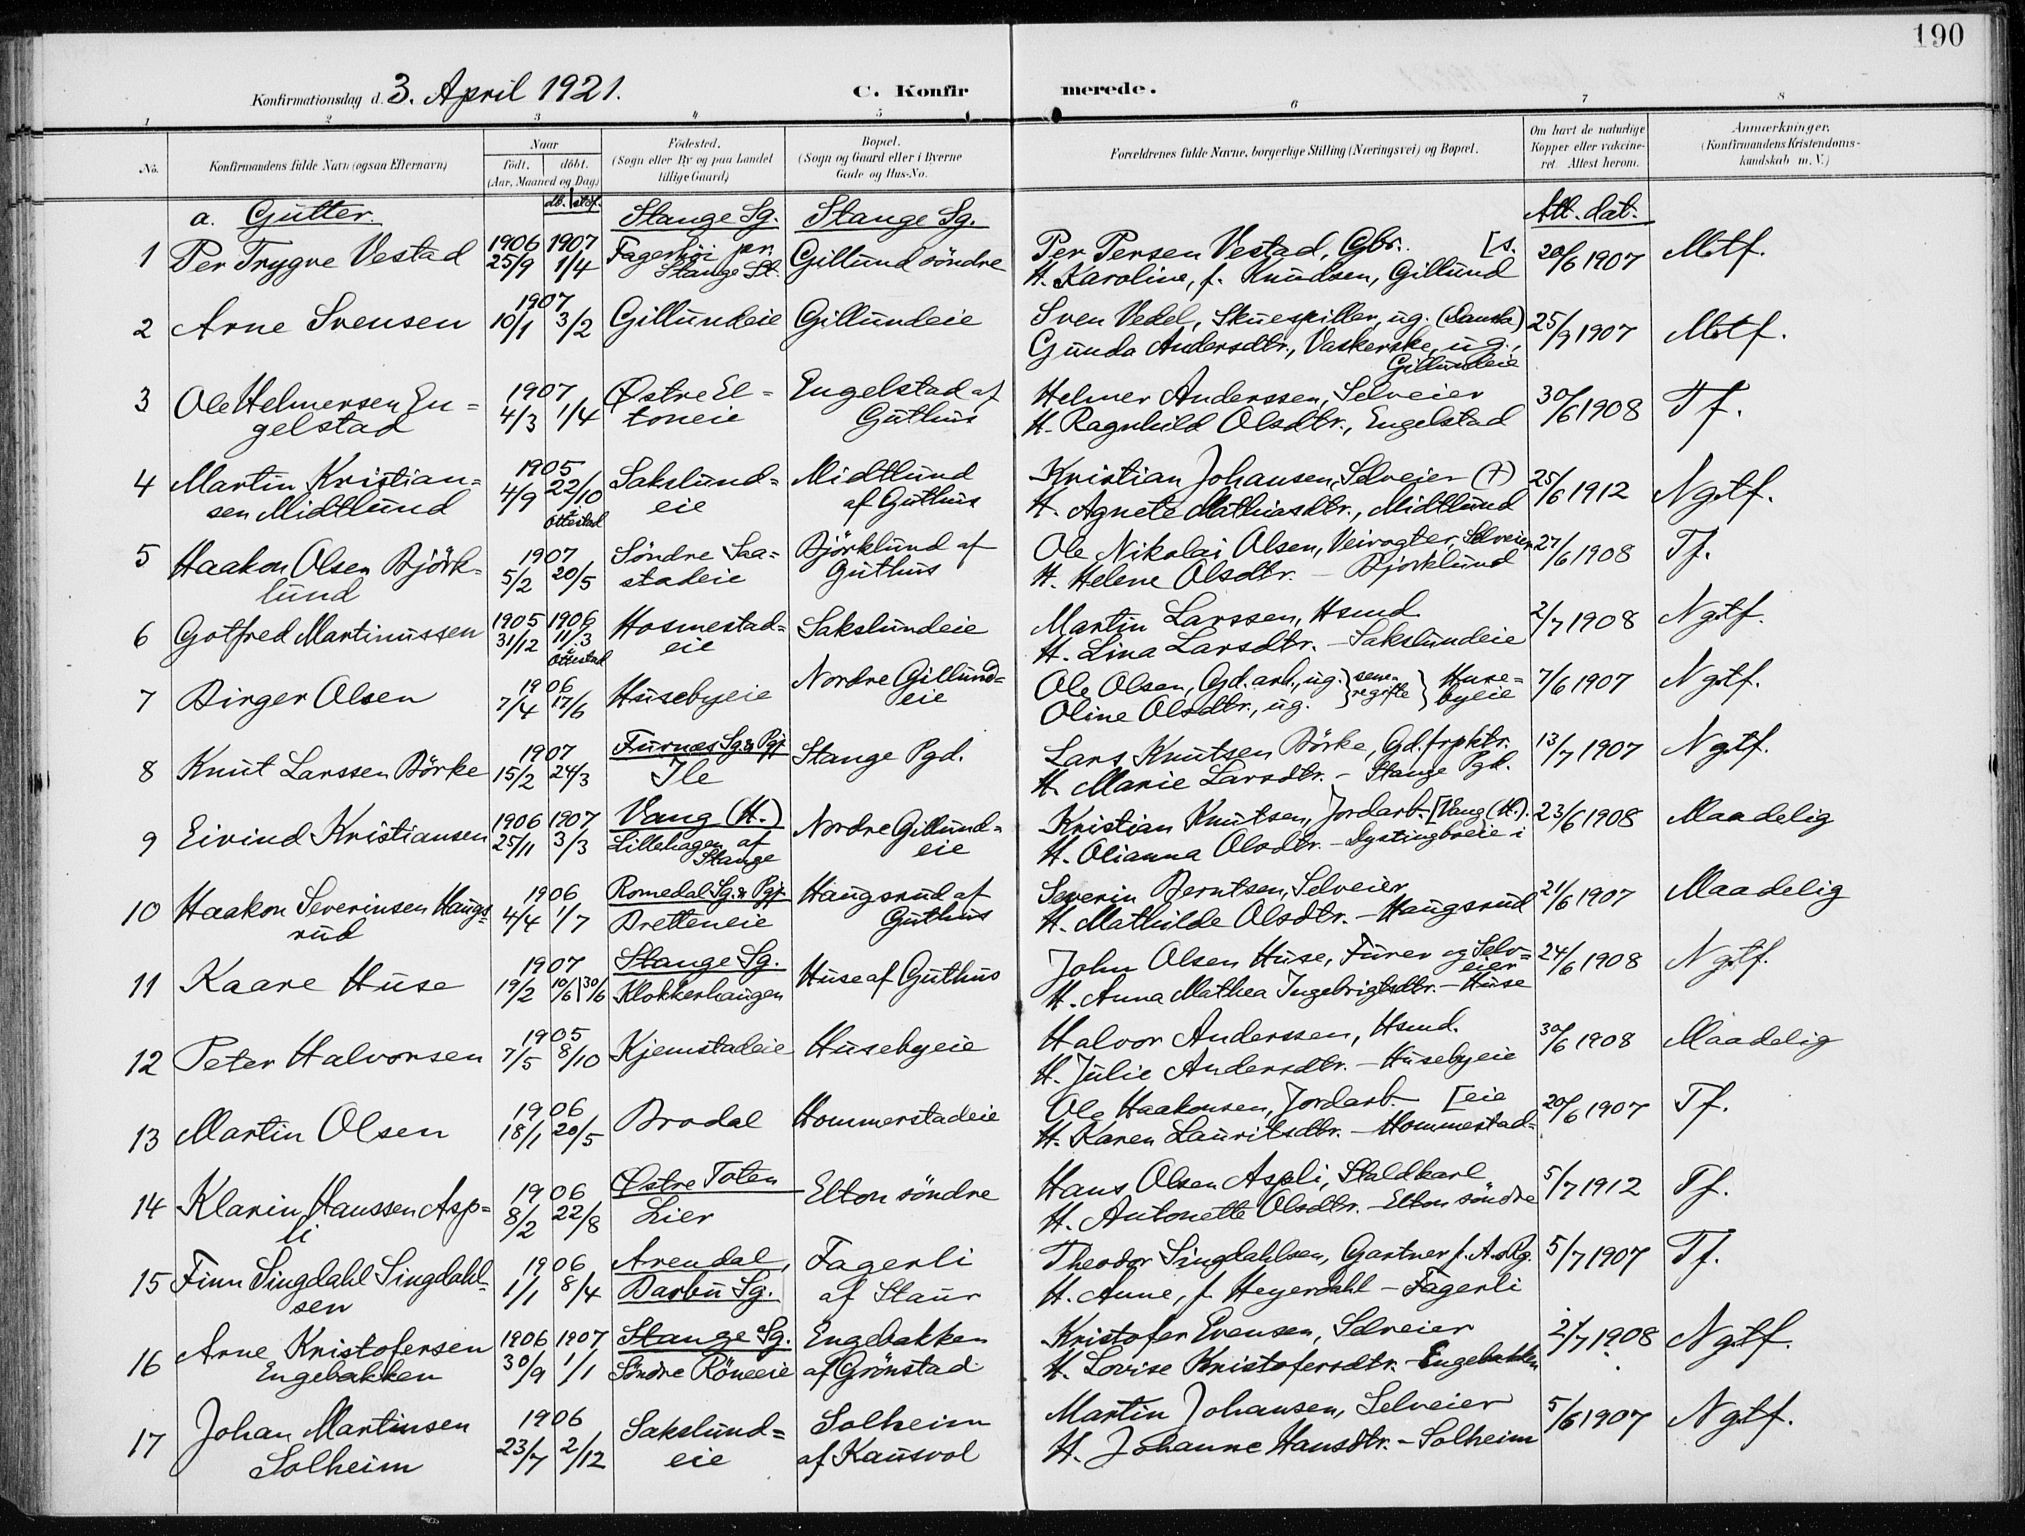 190
Konfirmationsdag d. 3. April 1921. C. Konfir merede.
1 2 3 4 5 6 7 8
No. Konfirmandens fulde Navn (ogsaa Efternavn)
Naar
født. døbt.
(Aar, Maaned og Dag)
Fødested.
(Sogn eller By og paa Landet
tillige Gaard)
Bopæl.
(Sogn og Gaard eller i Byerne
Gade og Hus-No.
Forældrenes fulde Navne, borgerlige Stilling (Næringsvei) og Bopæl.
Om havt de naturlige
Kopper eller vakcine-
ret. Attest herom.
Anmærkninger.
(Konfirmandens Kristendoms-
kundskab m. V.)
a. Gutter. db. stf. Stange Sg. Stange Sg. Att. dat.
1 Per Trygve Vestad 1906 25/9 1907 1/4 Fagerhöi pr. Gillund söndre Per Persen Vestad, Gbr. [s. 20/6 1907 Mtf.
Stange St. H. Karoline, f. Knudsen, Gillund
2 Arne Svensen 1907 10/1 3/2 Gillundeie Gillundeie Sven Vedel, Skuespiller, ug. (Dansk) 25/9 1907 Mtf.
Gunda Andersdtr., Vaskerske, ug.,
Gillundeie
3 Ole Helmersen En= 1907 4/3 1/4 Østre El= Engelstad af Helmer Anderssen, Selveier 30/6 1908 Tf.
gelstad toneie Guthus H. Ragnhild Olsdtr., Engelstad
4 Martin Kristian= 1905 4/9 22/10 Sakslund= Midtlund Kristian Johansen, Selveier (+) 25/6 1912 Ngtf.
sen Midtlund Ottestad eie af Guthus H. Agnete Mathiasdtr., Midtlund
5 Haakon Olsen Björk= 1907 5/2 20/5 Söndre Saa= Björklund af Ole Nikolai Olsen, Veivogter, Selveier 27/6 1908 Tf.
lund stadeie Guthus H. Helene Olsdtr. – Björklund
6 Gotfred Martinussen 1905 31/12 1906 11/3 Hosmestad= Sakslundeie Martin Larssen, Hsmd 2/7 1908 Ngtf.
Ottestad eie H. Lina Larsdtr. – Sakslundeie
7 Birger Olsen 1906 7/4 17/6 Husebyeie Nordre Gillund= Ole Olsen, Gd.arb., ug. } sene- } Huse= 7/6 1907 Ngtf.
eie Oline Olsdtr., ug. } re gifte } byeie
8 Knut Larssen Börke 1907 15/2 24/3 Furnæs Sg. & Pgj. Stange Pgd. Lars Knutsen Börke, Gd.frpktr. 13/7 1907 Ngtf.
Ile H. Marie Larsdtr. – Stange Pgd.
9 Eivind Kristiansen 1906 25/11 1907 3/3 Vang (H.) Nordre Gillund= Kristian Knutsen, Jordarb. [Vang (H.). 23/6 1908 Maadelig
Lillehagen af Stange eie H. Olianna Olsdtr. – Dystingboeie i
10 Haakon Severinsen Haugs= 1906 4/4 1/7 Romedal Sg. & Pgj. Haugsrud af Severin Berntsen, Selveier 21/6 1907 Maadelig
rud Bretteneie Guthus H. Mathilde Olsdtr. – Haugsrud
11 Kaare Huse 1907 19/2 10/6 | 30/6 Stange Sg. Huse af Guthus John Olsen Huse, Furer og Selv= 24/6 1908 Ngtf.
Klokkerhaugen eier
H. Anna Mathea Ingebrigtsdtr. – Huse
12 Peter Halvorsen 1905 7/5 8/10 Kjemstadeie Husebyeie Halvor Anderssen, Hsmd. 30/6 1908 Maadelig
H. Julie Andersdtr. – Husebyeie
13 Martin Olsen 1906 18/1 20/5 Brodal Hommerstadeie Ole Haakonsen, Jordarb. [eie 20/6 1907 Tf.
H. Karen Lauritsdtr. – Hommestad=
14 Klarin Hanssen Asp= 1906 8/2 22/8 Østre Toten Elton söndre Hans Olsen Aspli, Staldkarl 5/7 1912 Tf.
li Lier H. Antonette Olsdtr. – Elton söndre
15 Finn Singdahl Singdahl= 1906 1/1 8/4 Arendal, Fagerli Theodor Singdahlsen, Gartner f. A.s Rg. 5/7 1907 Tf.
sen Barbu Sg. af Staur H. Anne, f. Heyerdahl – Fagerli
16 Arne Kristofersen 1906 30/9 1907 1/1 Stange Sg. Engebakken Kristofer Evensen, Selveier 2/7 1908 Ngtf.
Engebakken Söndre Röneeie af Grönstad H. Lovise Kristofersdtr. – Engebakken
17 Johan Martinsen 1906 23/7 2/12 Sakslund= Solheim Martin Johansen, Selveier 5/6 1907 Ngtf.
Solheim eie af Kausvol H. Johanne Hansdtr. – Solheim